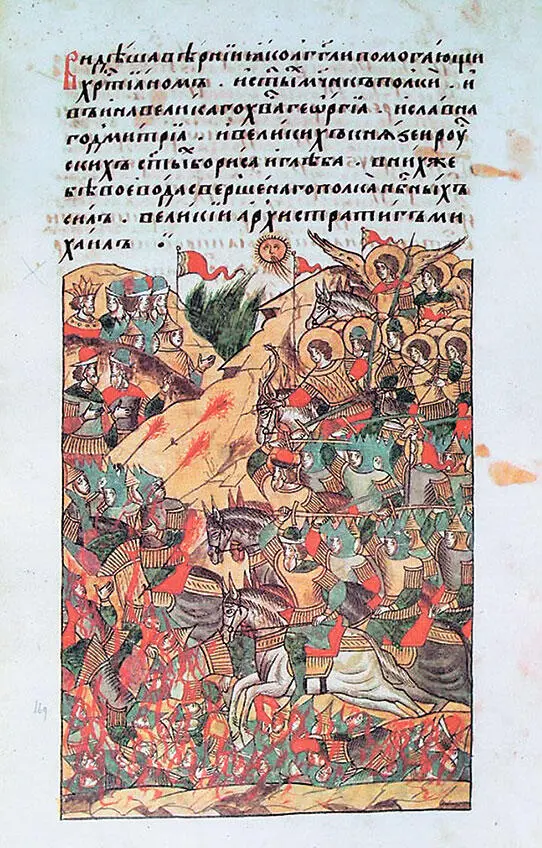 Видѣша вѣрнїи ꙗко агг҃ли помогающи
хрт҃їаномъ . и ст҃ыⷯ мч҃нкъ полки . и
въина великаго хв҃а георгїа . и славна
го дмитрїа . и великихъ кнѧѕеи роу
скихъ ст҃ыⷯ бориса и глѣба . в нихже
бѣ воевода свершенаго полка нб҃ныхъ
силъ . великїи архистратигъ ми
хаилъ ⁘
169